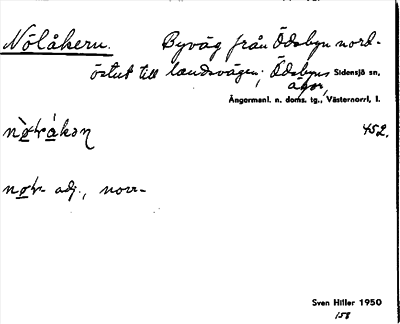 Nölåkern. Byväg från Ödsbyn nord-
östut till landsvägen; Ödsbyns Sidensjö sn,
ägor,
Ångermanl. n. doms. tg., Västernorrl. l.
452.
adj., norr-
Sven Hiller 1950
158